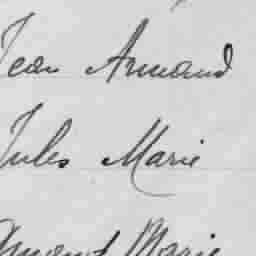 Jean Armand
Jules Marie
Marie